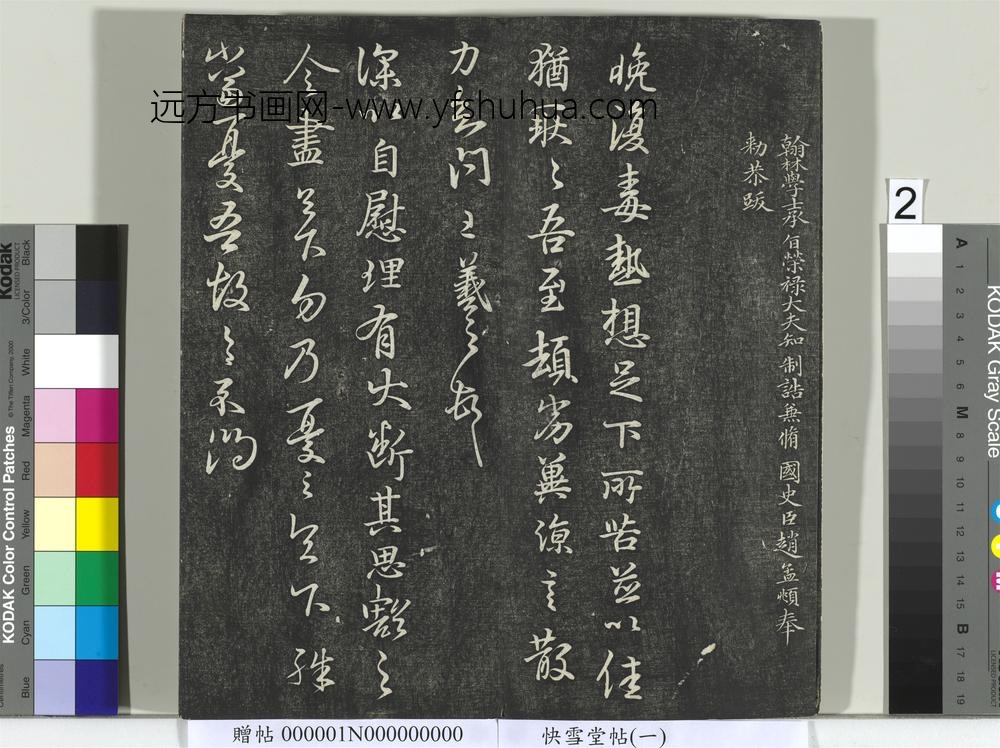 翰林學士承旨榮祿大夫知制誥兼脩國史臣趙孟頫奉
勑恭跋
晚復毒熱想足下所苦並以佳
猶耿〻吾至頓劣冀涼言散
力知問王羲之頓首
深以自慰理有大斷其思豁之
令盡足下勿乃憂之足下殊
當憂吾故具示問
远方书画网-www.yfshuhua.com
贈帖 000001N000000000
快雪堂帖(一)
2
Kodak
LICENSED PRODUCT
KODAK Color Control Patches
© The Tiffen Company, 2000
Black
3/Color
White
Magenta
Red
Yellow
Green
Cyan
Blue
KODAK Gray Scale
A 1 2 3 4 5 6 M 8 9 10 11 12 13 14 15 B 17 18 19